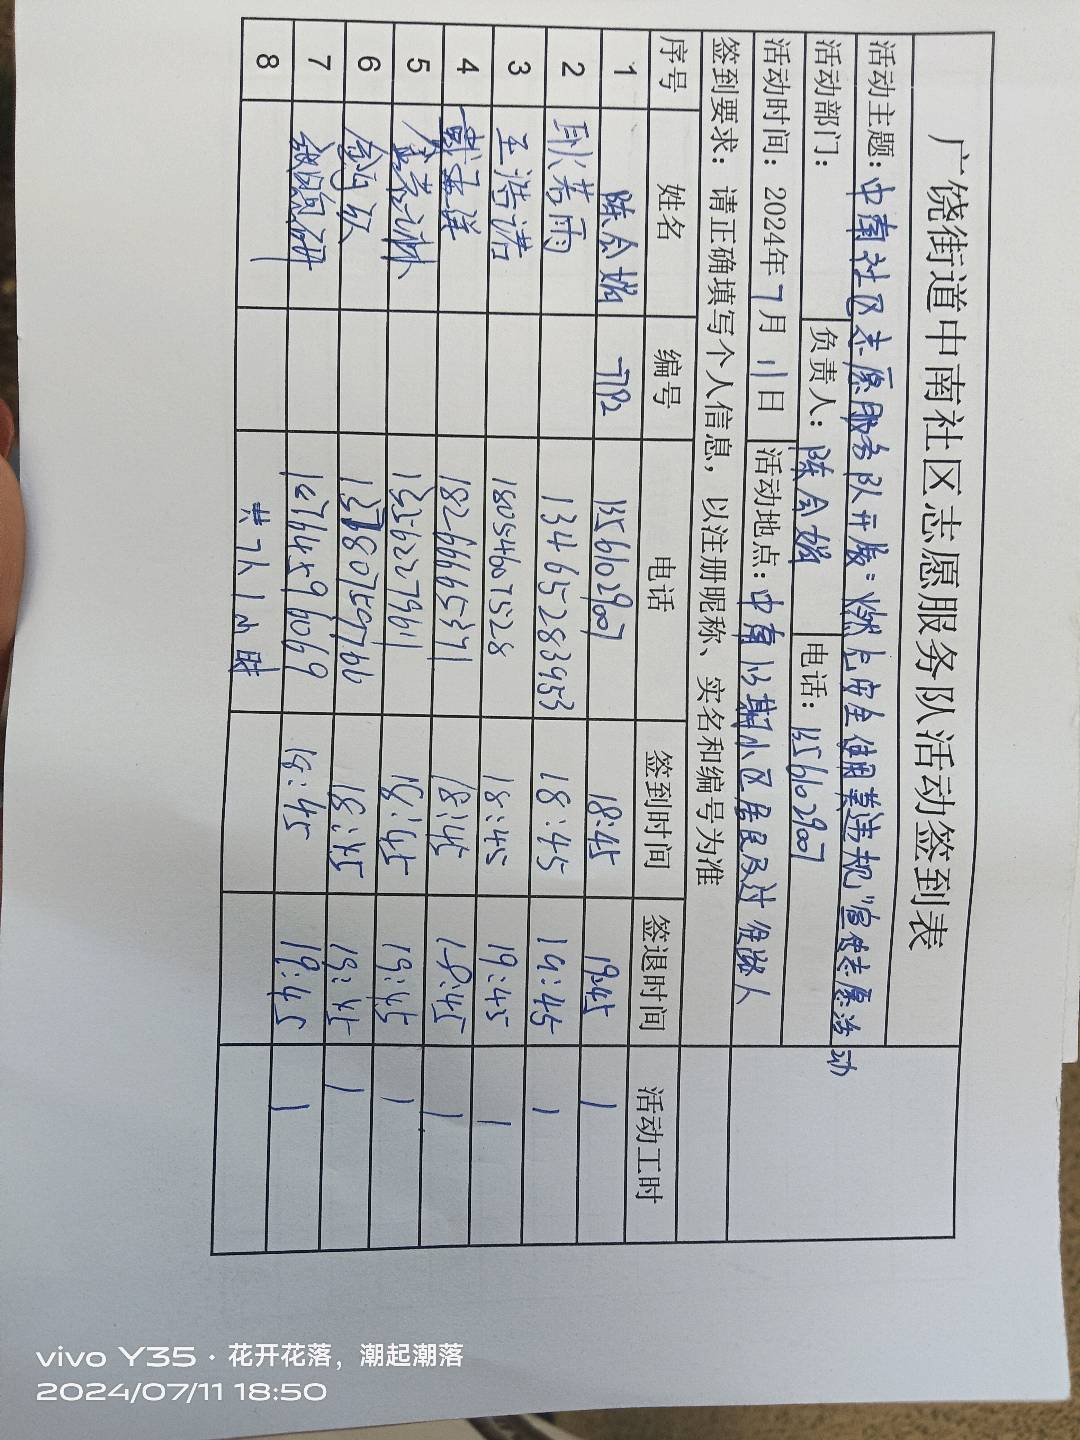 广饶街道中南社区志愿服务队活动签到表
活动主题：中南社区志愿服务队开展：燃气安全使用莫违规"宣传志愿活动
活动部门： 负责人：陈会娟 电话：13561029007
活动时间：2024年7月11日 活动地点：中南 期小区居民及过往 人
签到要求：请正确填写个人信息，以注册昵称、实名和编号为准
序号 姓名 编号 电话 签到时间 签退时间 活动工时
1 陈会娟 7182 13561029007 18:45 19:45 1
2 耿若雨 13465283953 18:45 19:45 1
3 王浩诺 18054607528 18:45 19:45 1
4 戴 18266665371 18:45 19:45 1
5 13562279611 18:45 19:45 1
6 18:45 19:45 1
7 18:45 19:45 1
8 共7人1小时
vivo Y35 · 花开花落，潮起潮落
2024/07/11 18:50